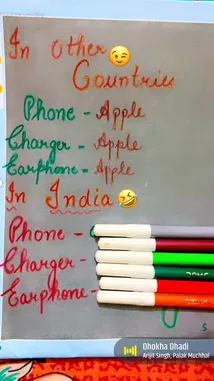 In Other 😉
Countries
Phone - Apple
Charger - Apple
Earphone - Apple
In India 🤣
Phone -
Charger -
Earphone -
S
Dhokha Dhadi
Arijit Singh, Palak Muchhal